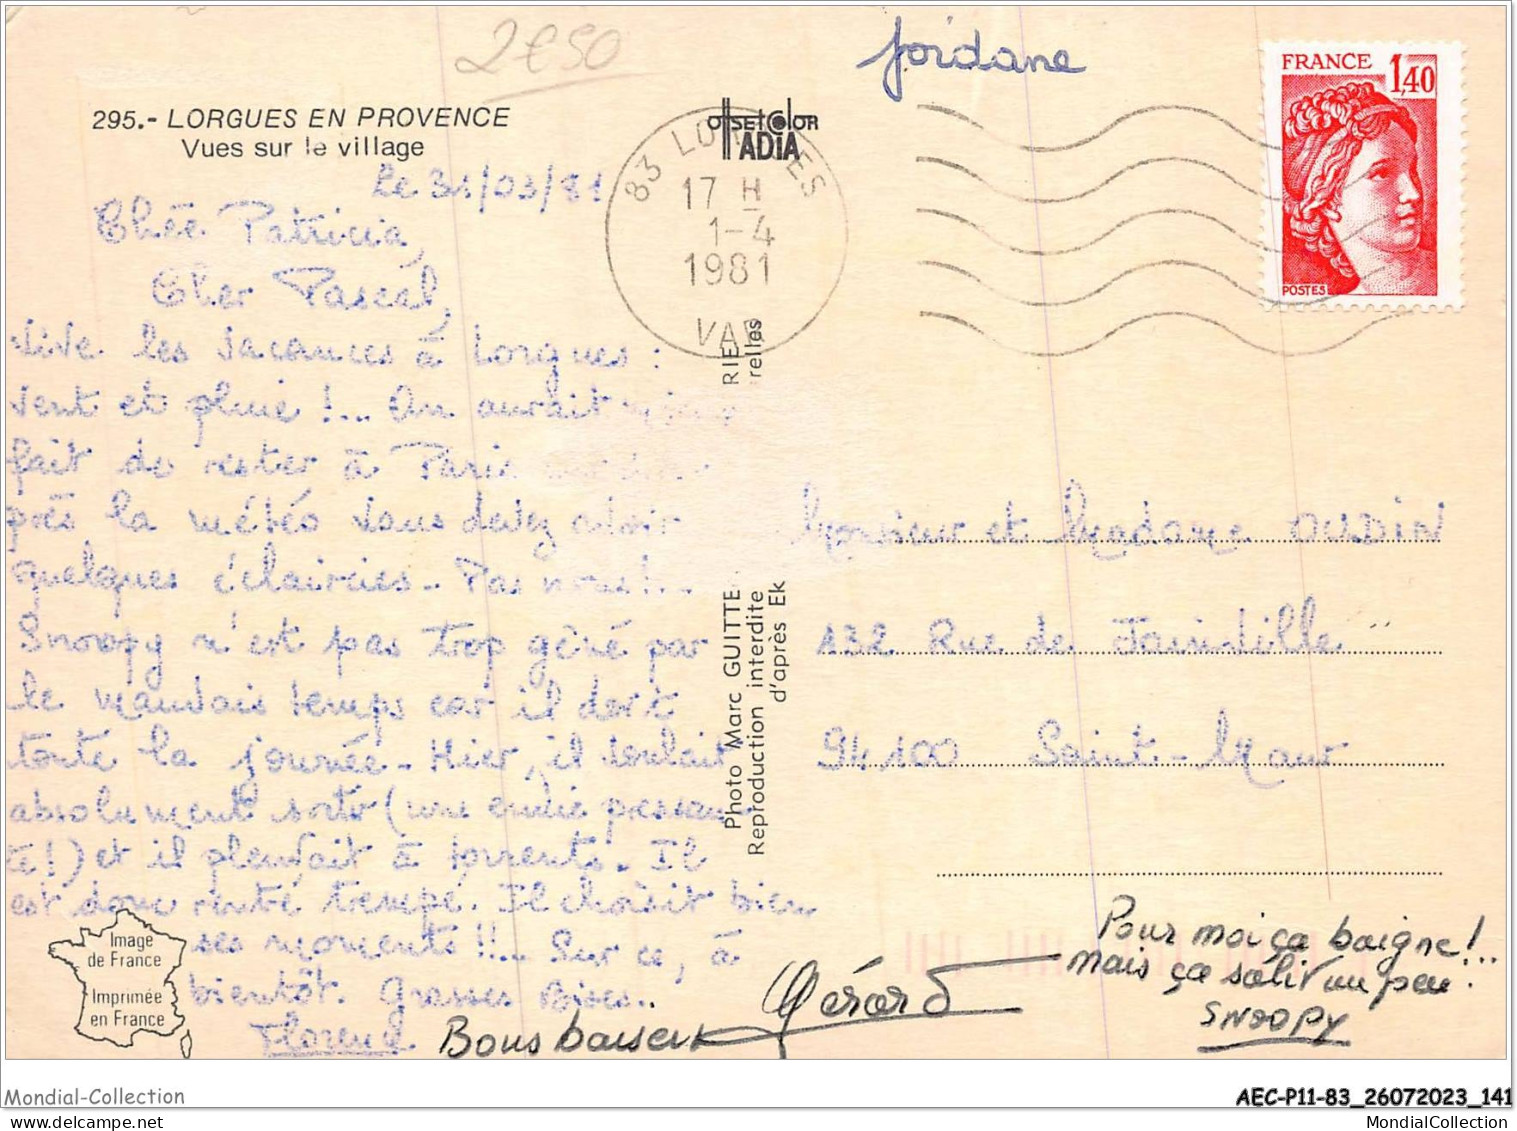 2€50
Jordane
FRANCE
1,40
POSTES
295.- LORGUES EN PROVENCE
Vues sur le village
OffSET COlOR
ADiA
83 LORGUES
17 H
1-4
1981
VAR
Le 31/03/81
Chère Patricia,
Cher Pascal,
Vive les vacances à Lorgues :
vent et pluie !... On aurait mieux
fait de rester à Paris
près la météo vous devez avoir
quelques éclaircies - Pas nous !..
Snoopy n'est pas trop gêné par
le mauvais temps car il dort
toute la journée - Hier, il voulait
absolument sortir (une envie pressan-
te !) et il pleuvait à torrents. Il
est donc rentré trempé. Il choisit bien
ses moments !!.. Sur ce, à
bientôt. Grosses Bises..
Florence
Bons baisers
Gérard
Pour moi ça baigne !..
mais ça salit un peu.
SNOOPY
Monsieur et Madame OUDIN
132 Rue de Joinville
94100 Saint-Maur
Photo Marc GUITTE
RIE
Reproduction interdite
relles
d'après Ek
Image
de France
Imprimée
en France
Mondial-Collection
AEC-P11-83_26072023_141
MondialCollection